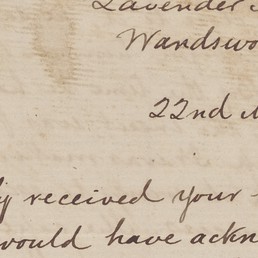 Lavender
Wandswo
22nd
received your
would have ackn